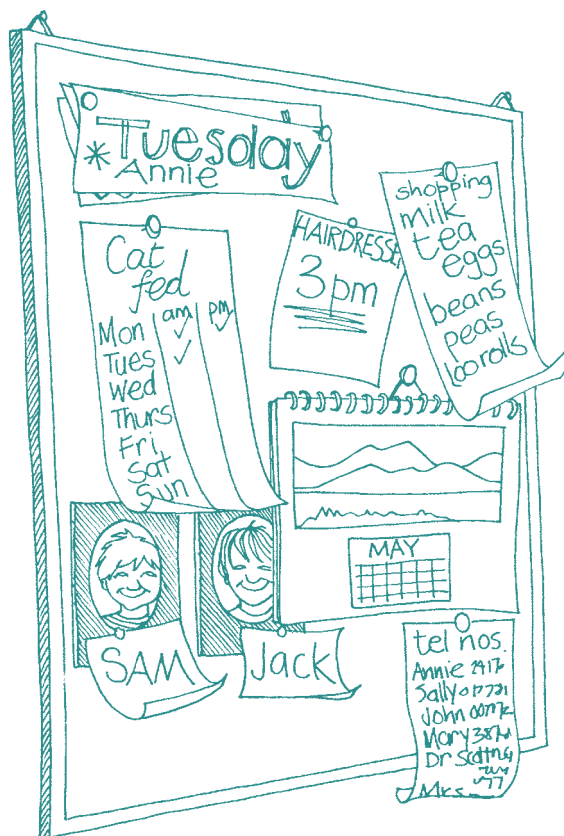 * Tuesday
Annie
Cat
fed
am pm
Mon
Tues
Wed
Thurs
Fri
Sat
Sun
HAIRDRESSER
3pm
shopping
milk
tea
eggs
beans
peas
loo rolls
MAY
SAM
Jack
tel nos.
Annie
Sally
John
Mary
Dr
Mrs